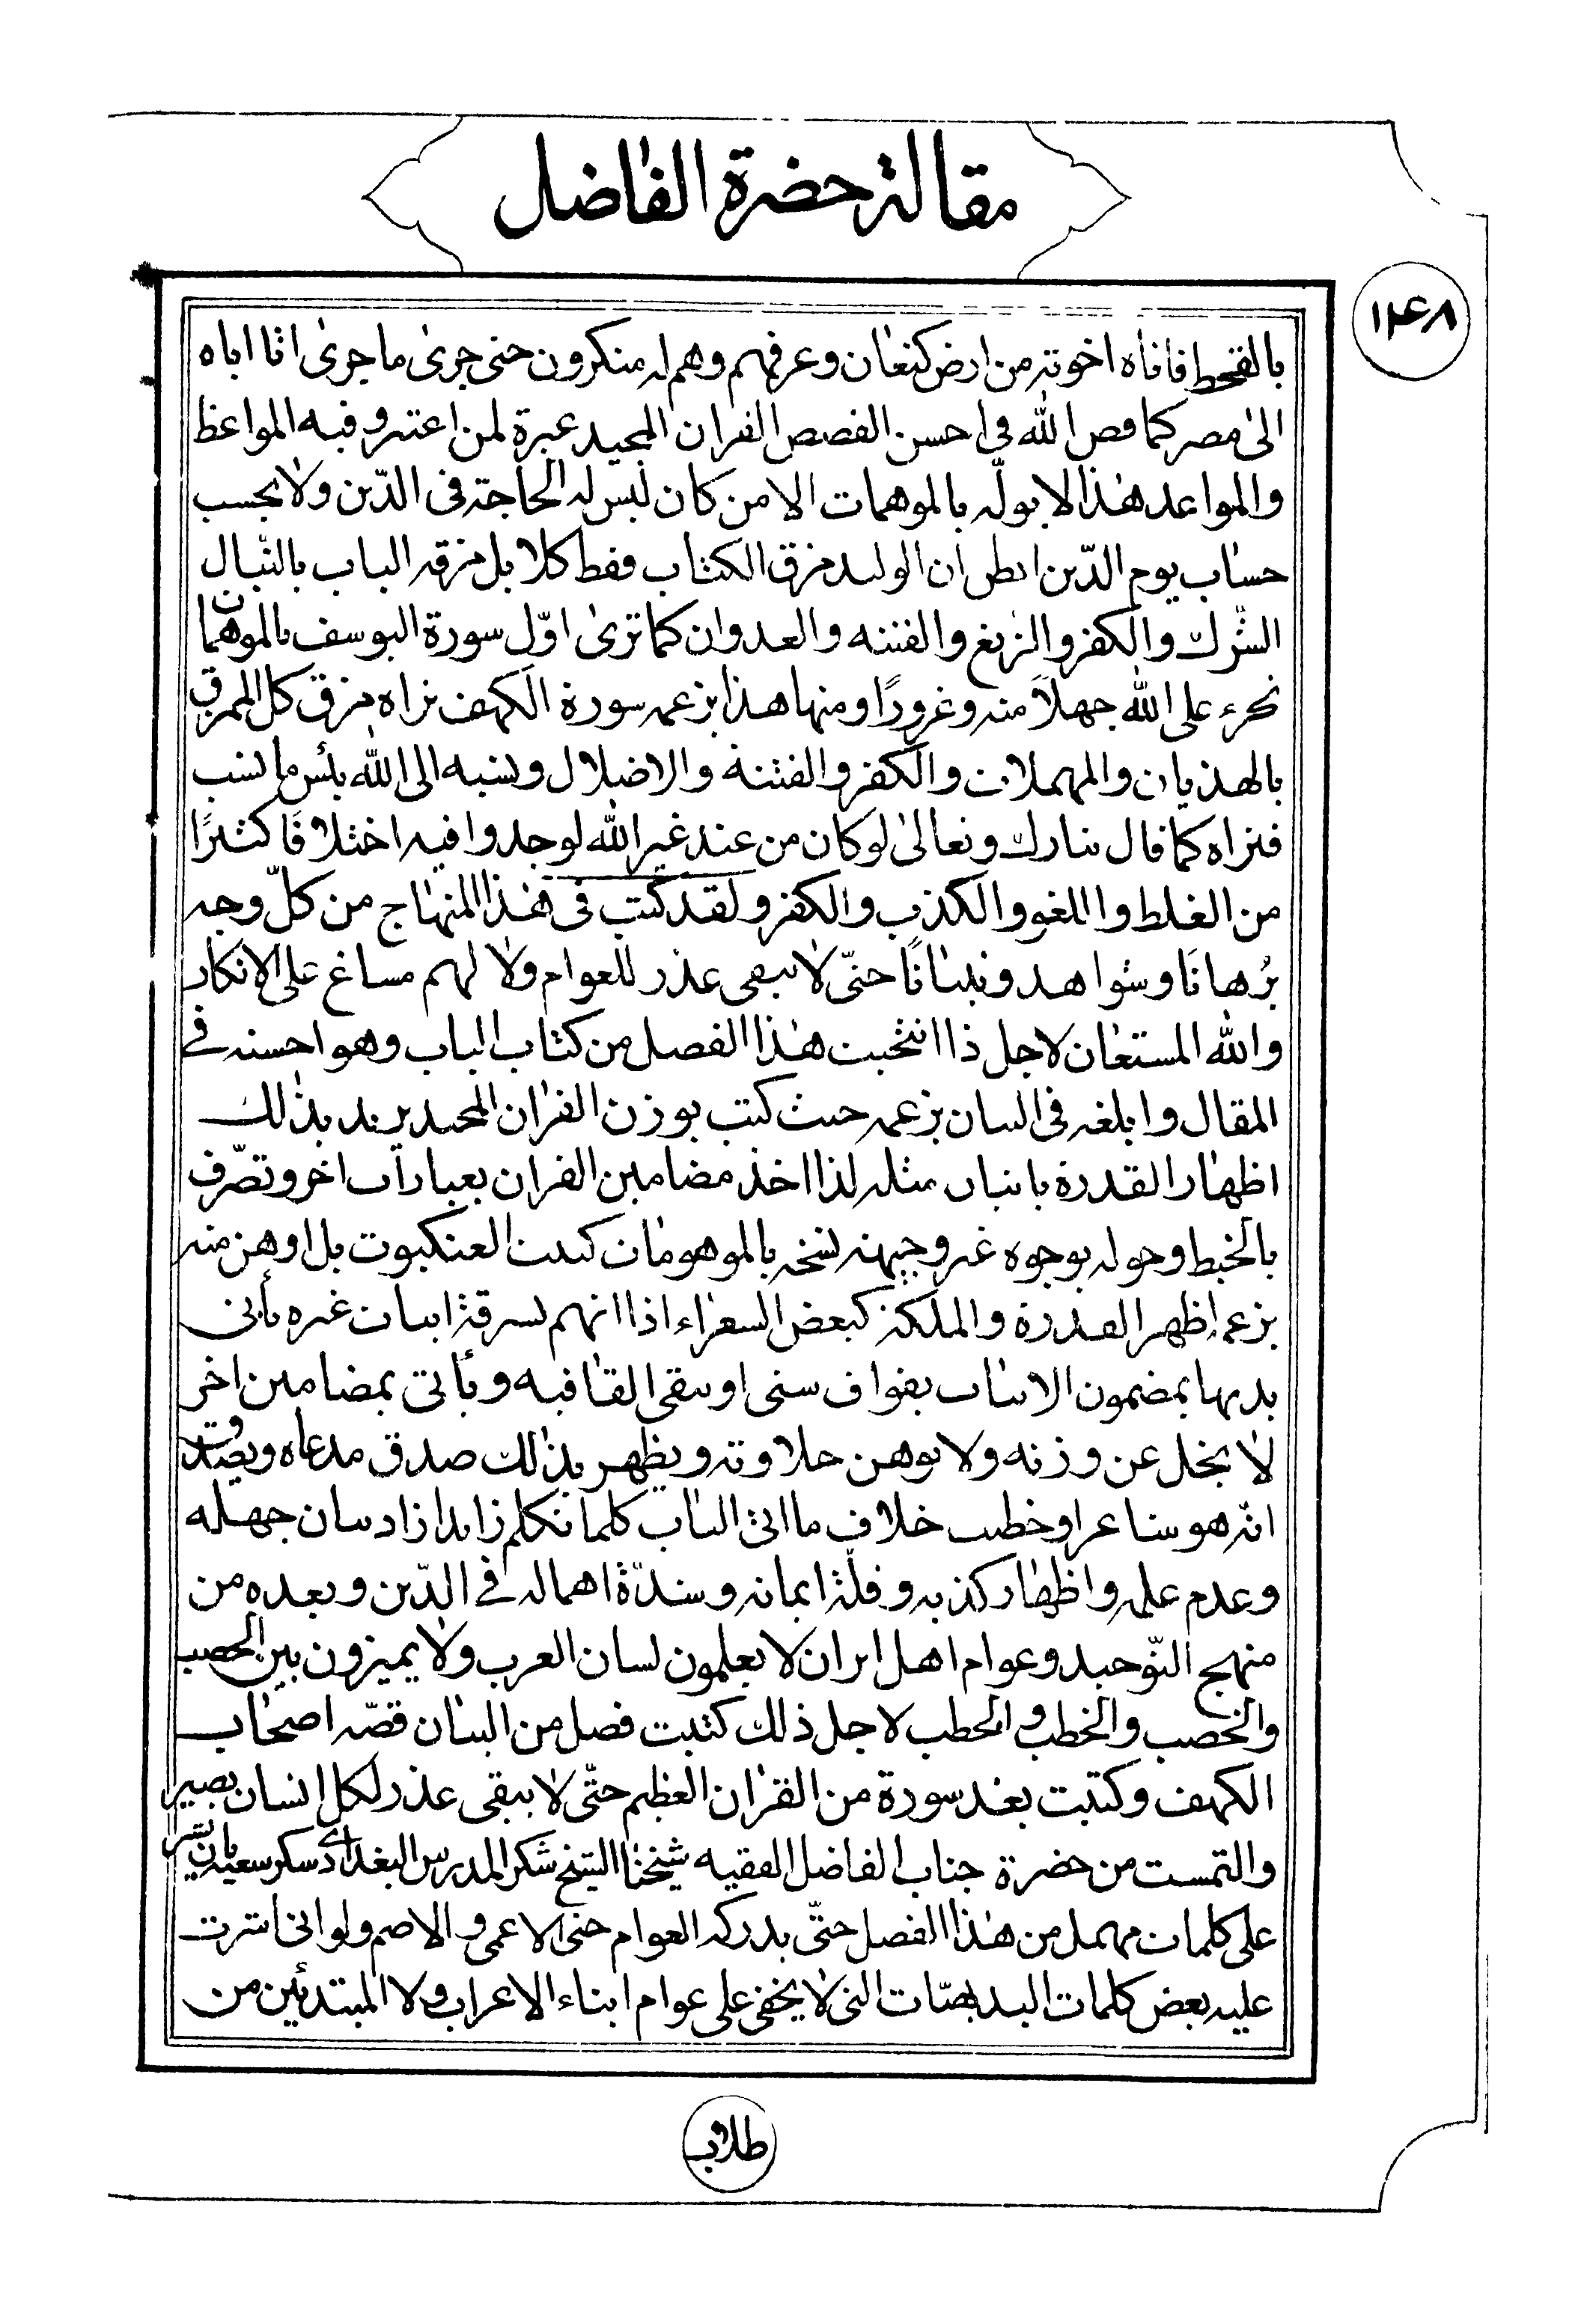 مقالة حضرة الفاضل
١٤٨
بالقحط فاتاه اخوته من ارض كنعان وعرفهم وهم له منكرون حتى جرى ما جرى اتا اباه
الى مصر كما قص الله فى احسن القصص القران المجيد عبرة لمن اعتبر وفيه المواعظ
والمواعد هذا لا يوله بالموهمات الا من كان ليس له الحاجة فى الدّين ولا يحسب
حساب يوم الدّين ان الوليد مزق الكتاب فقط كلا بل مزقه الباب بالنّبال
الشّرك والكفر والزيغ والفتنه والعدوان كما ترى اوّل سورة اليوسف بالموهمات
على الله جهلاً منه وغرورًا ومنها هذا بزعمه سورة الكهف نراه مزق كل الممزق
بالهذيان والمهملات والكفر والفتنة والاضلال ونسبه الى الله بئس ما نسب
فنراه كما قال تبارك وتعالى لو كان من عند غير الله لوجدوا فيه اختلافًا كثيرًا
من الغلط واللغو والكذب والكفر ولقد كتبت فى هذا المنهاج من كلّ وجه
بُرهانًا وشواهد وتبيانًا حتّى لا يبقى عذر للعوام ولا لهم مساغ على الانكار
والله المستعان لاجل ذا انتخبت هذا الفصل من كتاب الباب وهو احسنه فى
المقال وابلغه فى البيان بزعمه حيث كتب بوزن القران المجيد يريد بذلك
اظهار القدرة باتيان مثله لذا اخذ مضامين القران بعبارات اخر وتصرّف
بالخبط وحوله بوجوه غير وجيهة نسخه بالموهومات كبيت العنكبوت بل اوهن منه
بزعمه اظهر القدرة والملكة كبعض الشعراء اذا اتهم بسرقة ابيات غيره يأتى
بديها بمضمون الابيات بقواف ستى او يبقى القافيه ويأتى بمضامين اخر
لا يخل عن وزنه ولا يوهن حلاوته ويظهر بذلك صدق مدعاه ويثبت
انه هو شاعر او خطيب خلاف ما اتى الباب كلما تكلم زايدا زاد بيان جهله
وعدم علمه واظهار كذبه وقلة ايمانه وشدّة اهماله فى الدّين وبعده من
منهج التّوحيد وعوام اهل ايران لا يعلمون لسان العرب ولا يميزون بين الحصب
والخصب والخطب والحطب لاجل ذلك كتبت فصل من البيان قصّه اصحاب
الكهف وكتبت بعد سورة من القران العظيم حتّى لا يبقى عذر لكل انسان بصير
والتمست من حضرة جناب الفاضل الفقيه شيخنا الشيخ شكر المدرس البغدادى شكر سعيه بان يشير
على كلمات مهمل من هذا الفصل حتّى يدركه العوام حتى الاعمى والاصم ولو انى اشرت
عليه بعض كلمات البديهيّات التى لا يخفى على عوام ابناء الاعراب ولا المبتدئين من
طلاب